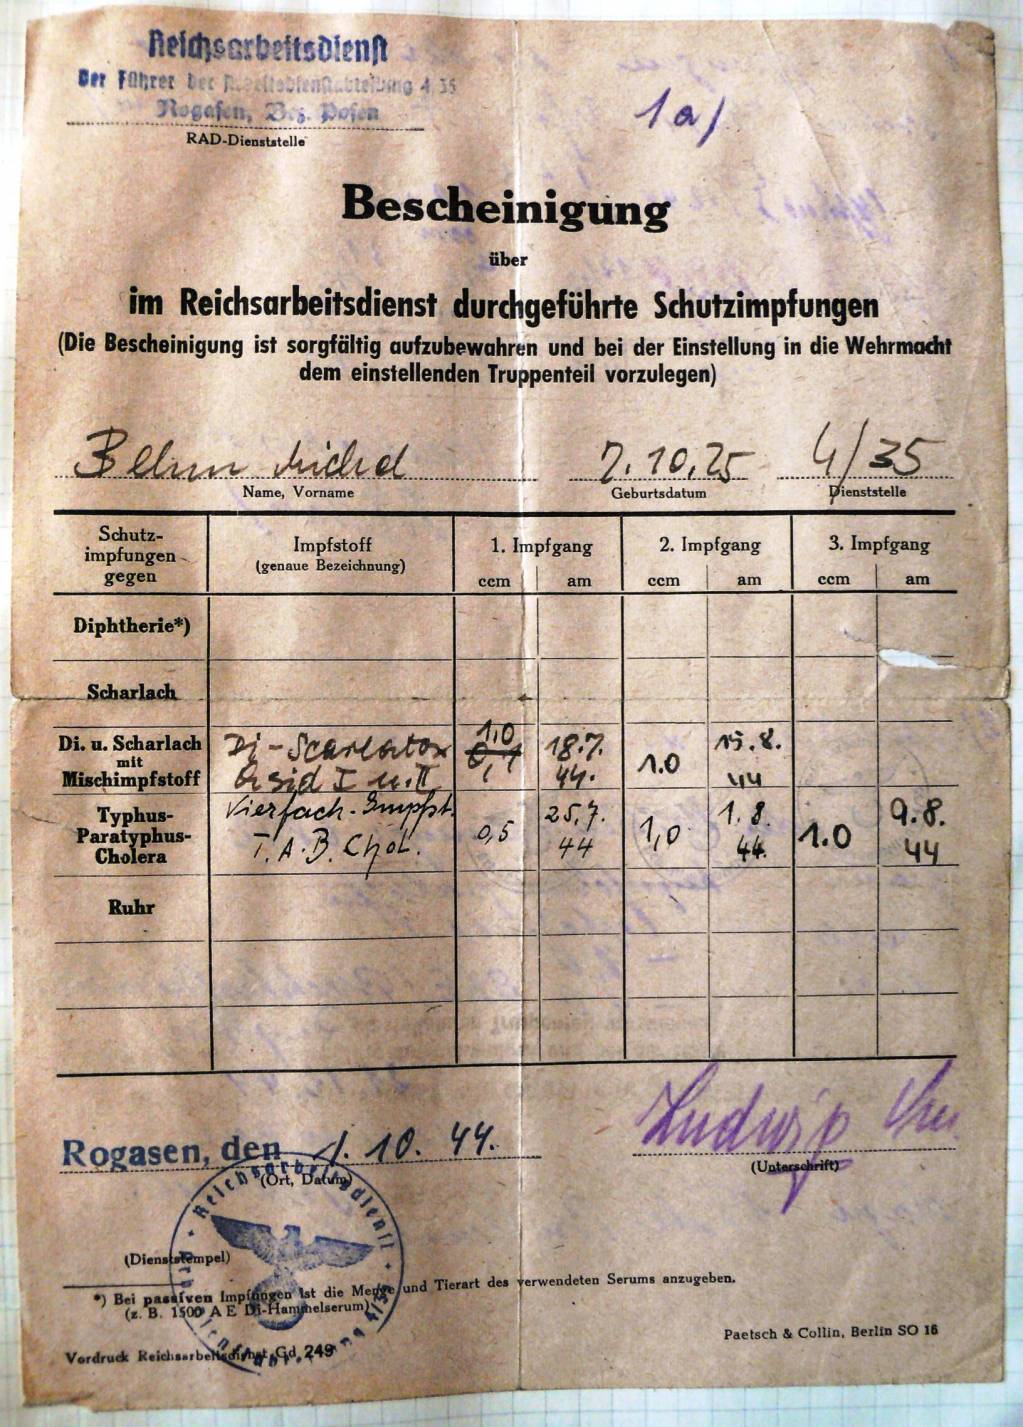 Reichsarbeitsdienst
Der Führer der Arbeitsdienstabteilung 4/35
Rogasen, Bez. Posen
RAD-Dienststelle
1a)
Bescheinigung
über
im Reichsarbeitsdienst durchgeführte Schutzimpfungen
(Die Bescheinigung ist sorgfältig aufzubewahren und bei der Einstellung in die Wehrmacht
dem einstellenden Truppenteil vorzulegen)
7.10.25 4/35
Name, Vorname Geburtsdatum Dienststelle
Schutz-
impfungen
gegen
Impfstoff
(genaue Bezeichnung)
1. Impfgang 2. Impfgang 3. Impfgang
ccm am ccm am ccm am
Diphtherie*)
Scharlach
Di. u. Scharlach
mit
Mischimpfstoff
Di-Scarlatox
Asid I u. II
1.0
18.7.
44.
1.0
15.8.
44
Typhus-
Paratyphus-
Cholera
Vierfach-Impfst.
T.A.B. Chol.
0,5
25.7.
44
1,0
1.8.
44.
1.0
9.8.
44
Ruhr
Rogasen, den 1.10.44.
(Ort, Datum)
Ludwig
(Unterschrift)
Reichsarbeitsdienst
(Dienststempel)
*) Bei passiven Impfungen ist die Menge und Tierart des verwendeten Serums anzugeben.
(z. B. 1500 A E Di-Hammelserum)
Paetsch & Collin, Berlin SO 16
Vordruck Reichsarbeitsdienst Gd 249